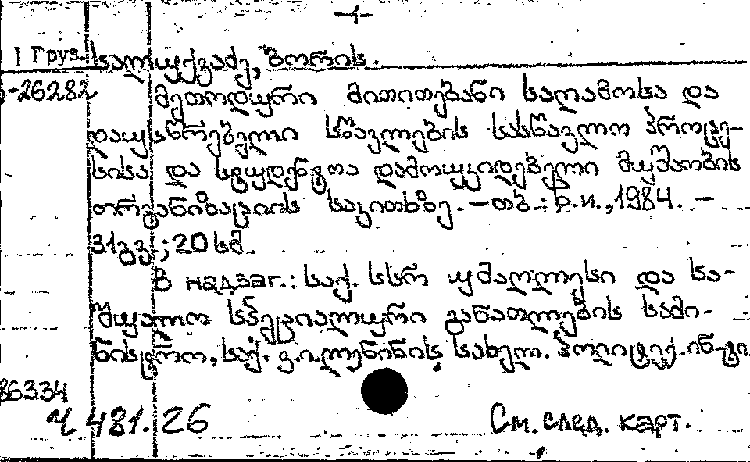 -1-
1 Груз. სალუქვაძე, ბორის.
-26282 მეთოდური მითითებანი საღამოსა და
დაუსწრებელი სწავლების სასწავლო პროცე-
სისა და სტუდენტთა დამოუკიდებელი მუშაობის
ორგანიზაციის საკითხზე. — თბ.: Б.и., 1984. —
31 გვ.; 20 სმ.
В надзаг.: საქ. სსრ უმაღლესი და სა-
შუალო სპეციალური განათლების სამი-
ნისტრო, საქ. ვ.ი.ლენინის სახელ. პოლიტექ. ინ-ტი
86334
Ч 481.26 См. след. карт.